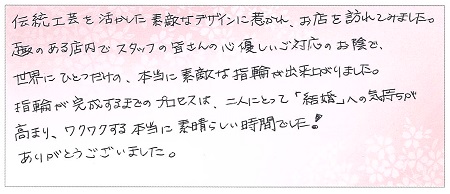 伝統工芸を活かした素敵なデザインに惹かれ、お店を訪れてみました。
趣のある店内でスタッフの皆さんの心優しいご対応のお陰で、
世界にひとつだけの、本当に素敵な指輪が出来上がりました。
指輪が完成するまでのプロセスは、二人にとって「結婚」への気持ちが
高まり、ワクワクする本当に素晴らしい時間でした!
ありがとうございました。